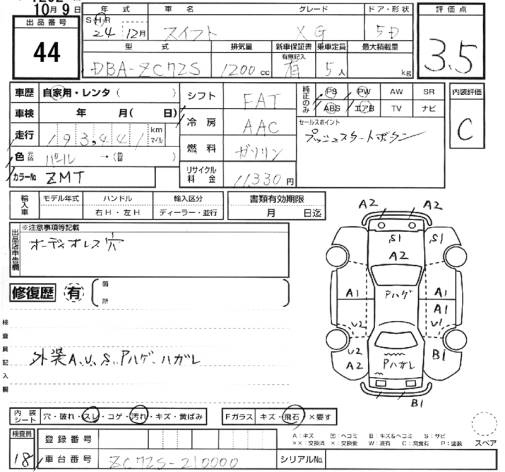 10月 9日
出品番号
44
S H R 年 式 車 名 グレード ドア・形状 評価点
24年 12月 スイフト XG 5D
3.5
型 式 排気量 新車保証書 乗車定員 最大積載量
有無記入
DBA-ZC72S 1200 cc 有 5人 kg
車歴 自家用・レンタ ( )
シフト FAT
純正のみ PS PW AW SR
ABS エアB TV ナビ
内装評価
C
車検 年 月( 日)
冷房 AAC
セールスポイント
プッシュスタートボタン
走行 193,441 km マイル
色 パール → ( )
燃料 ガソリン
カラーNo. ZMT
リサイクル料金 11330円
輸入車 モデル年式 ハンドル 輸入区分 書類有効期限
右H・左H ディーラー・並行 月 日迄
出品店申告欄 ※注意事項等記載
オーディオレス 穴
修復歴 有 ( 箇所 )
検査員記入欄
外装A、U、S、Pハゲ・ハガレ
A2 A2
S1 S1
A2
A1 Pハゲ A1
U1 U1
U2 U2
A2 Pハガレ B1
B1
内装シート 穴・破れ・スレ・コゲ・汚れ・キズ・黄ばみ
Fガラス キズ・飛石・×要す
スペア
A:キズ U:ヘコミ B:キズ&ヘコミ S:サビ
××:交換済 ×:交換要 W:波有 C:腐食 P:塗装
検査員 18
登録番号
車台番号 ZC72S-210000
シリアルNo.